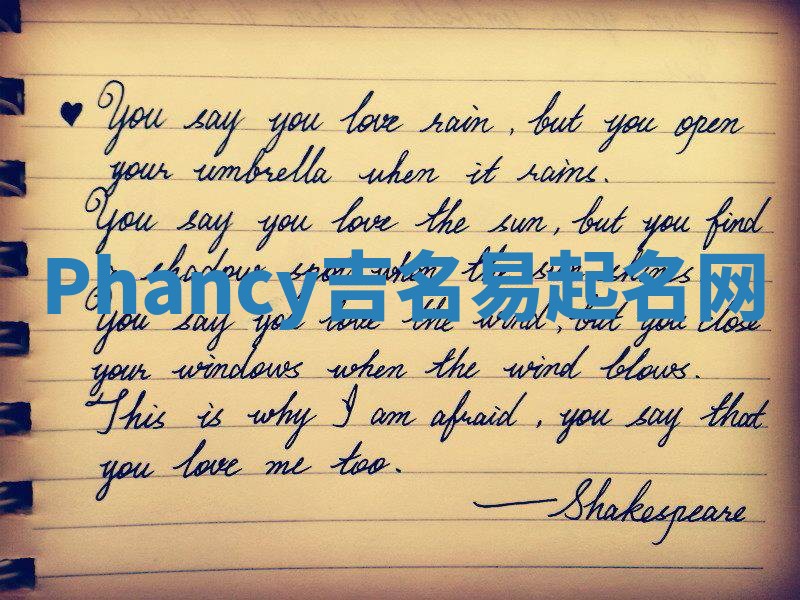 ♥ You say you love rain, but you open
your umbrella when it rains.
You say you love the sun, but you find
a shadow spot when the sun shines
Phancy吉名易起名网
You say you love the wind, but you close
your windows when the wind blows.
This is why I am afraid, you say that
you love me too.
—Shakespeare